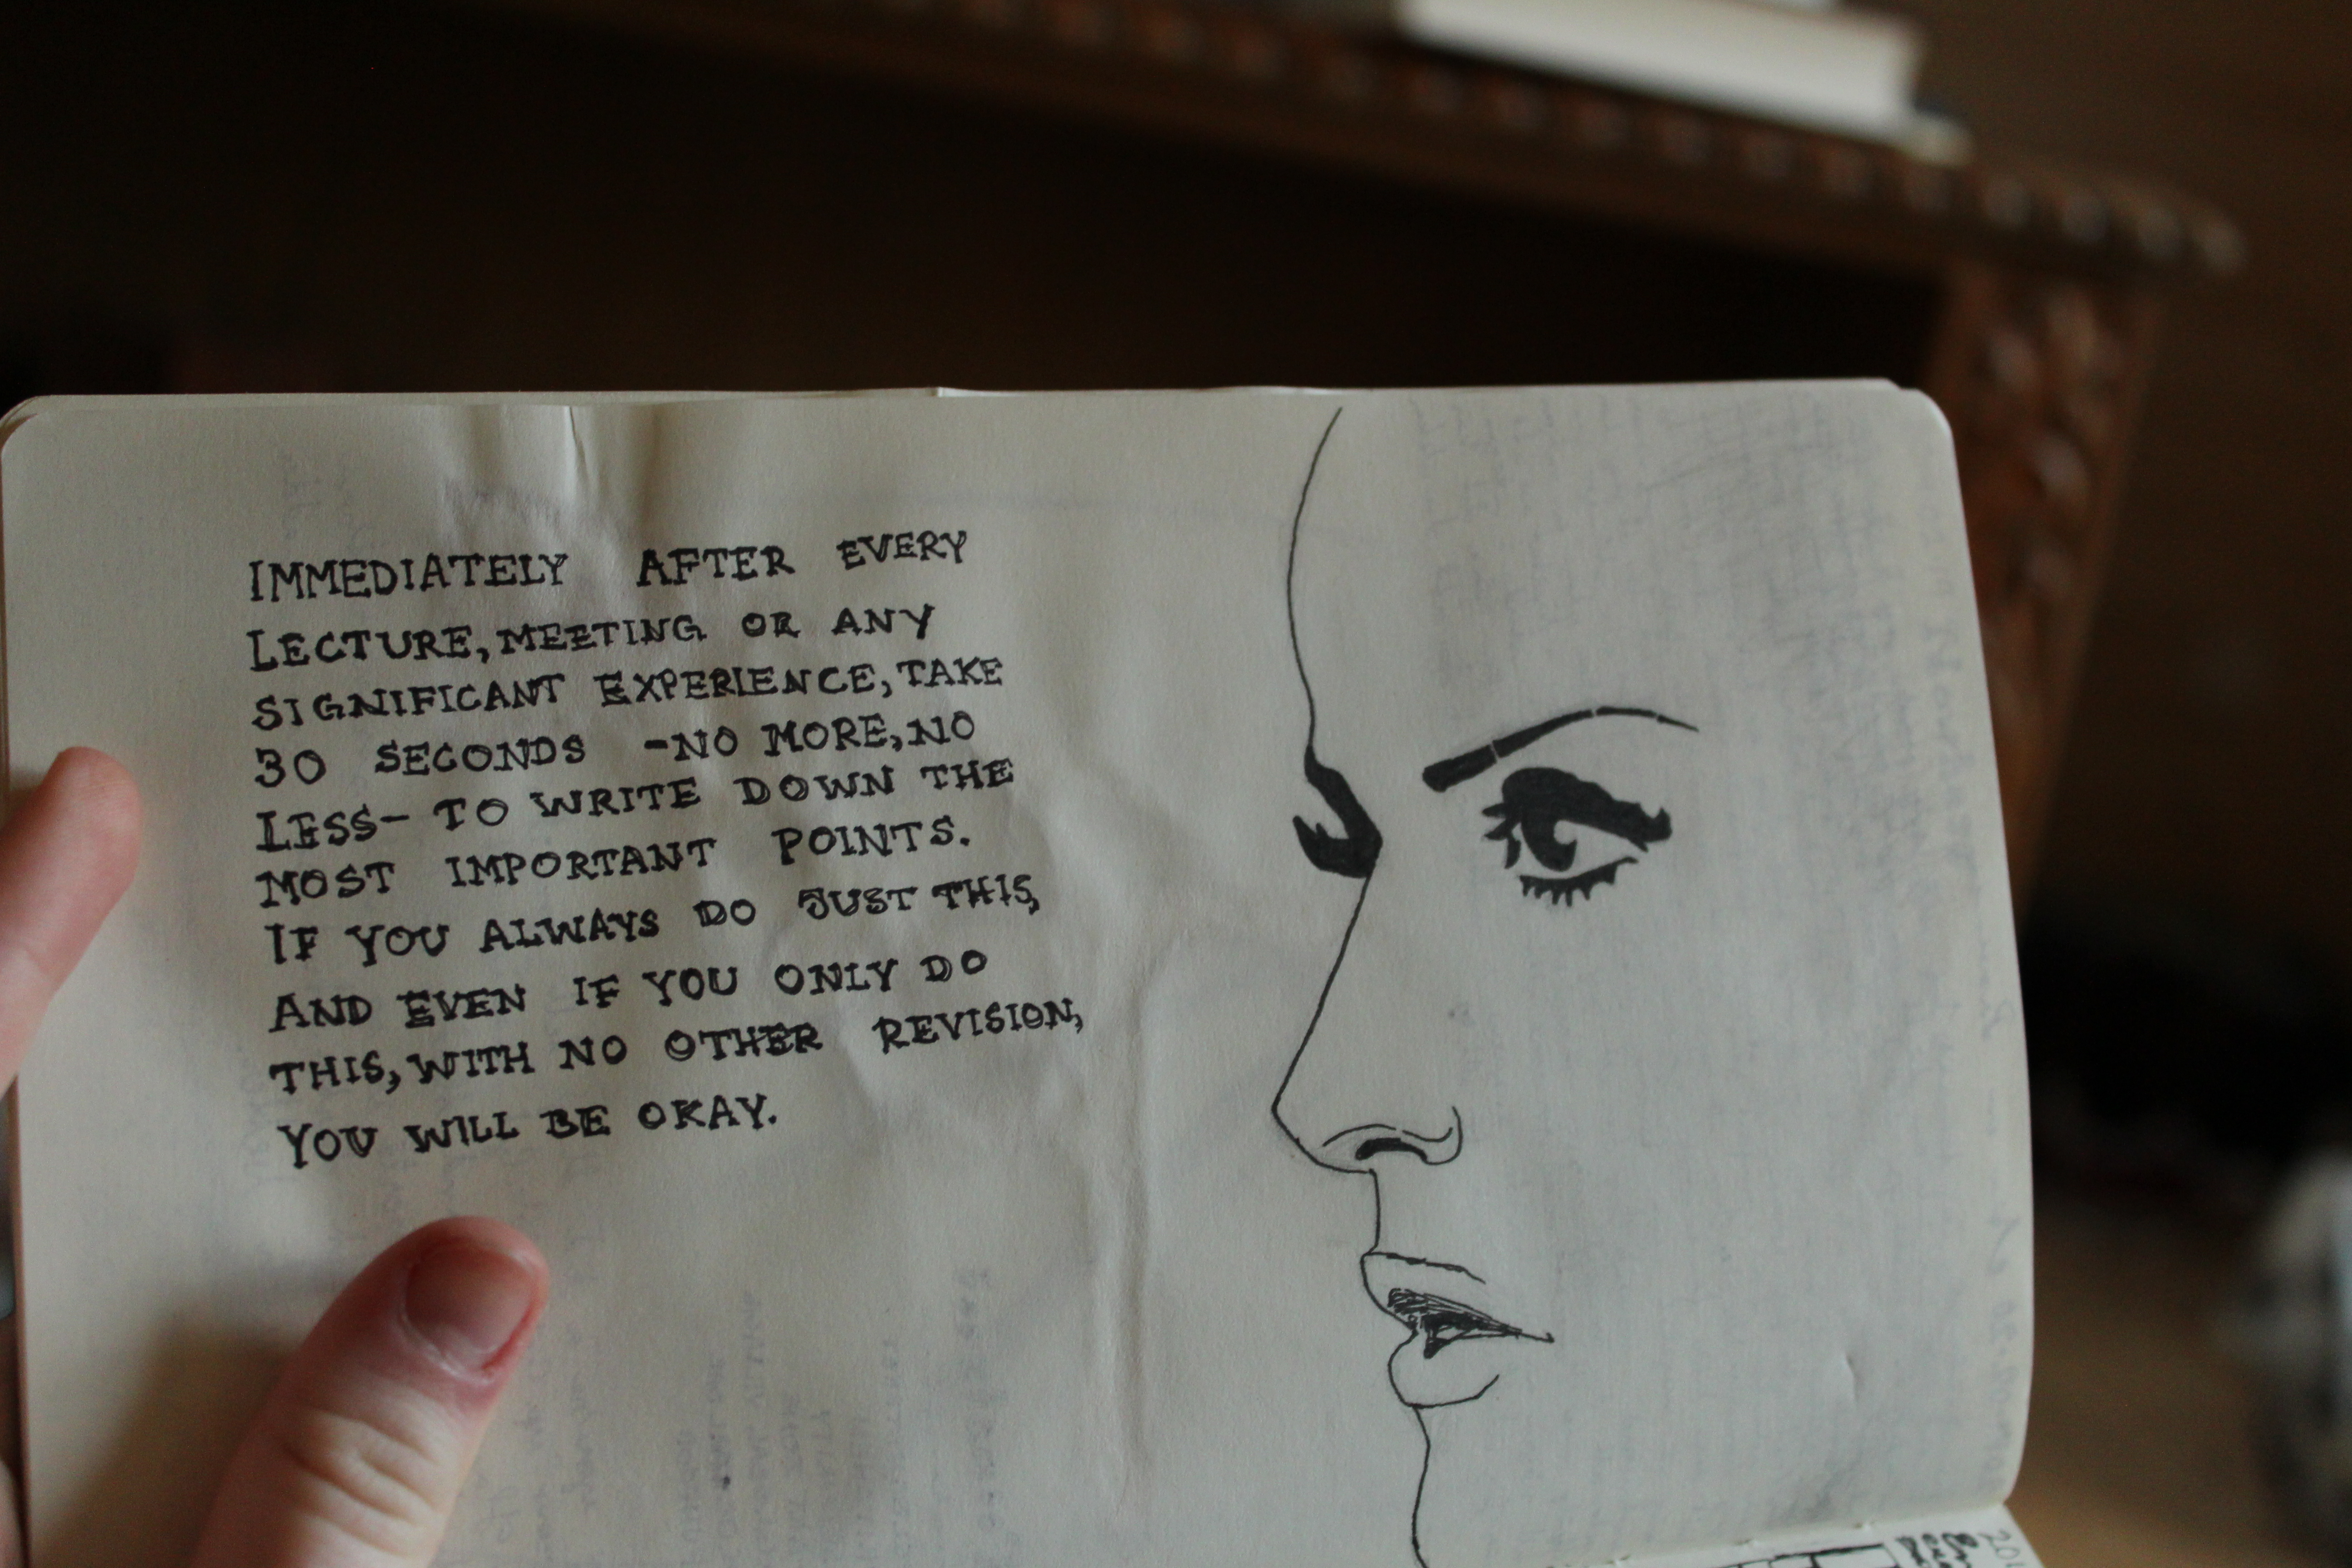 IMMEDIATELY AFTER EVERY
LECTURE, MEETING OR ANY
SIGNIFICANT EXPERIENCE, TAKE
30 SECONDS -NO MORE, NO
LESS- TO WRITE DOWN THE
MOST IMPORTANT POINTS.
IF YOU ALWAYS DO JUST THIS,
AND EVEN IF YOU ONLY DO
THIS, WITH NO OTHER REVISION,
YOU WILL BE OKAY.